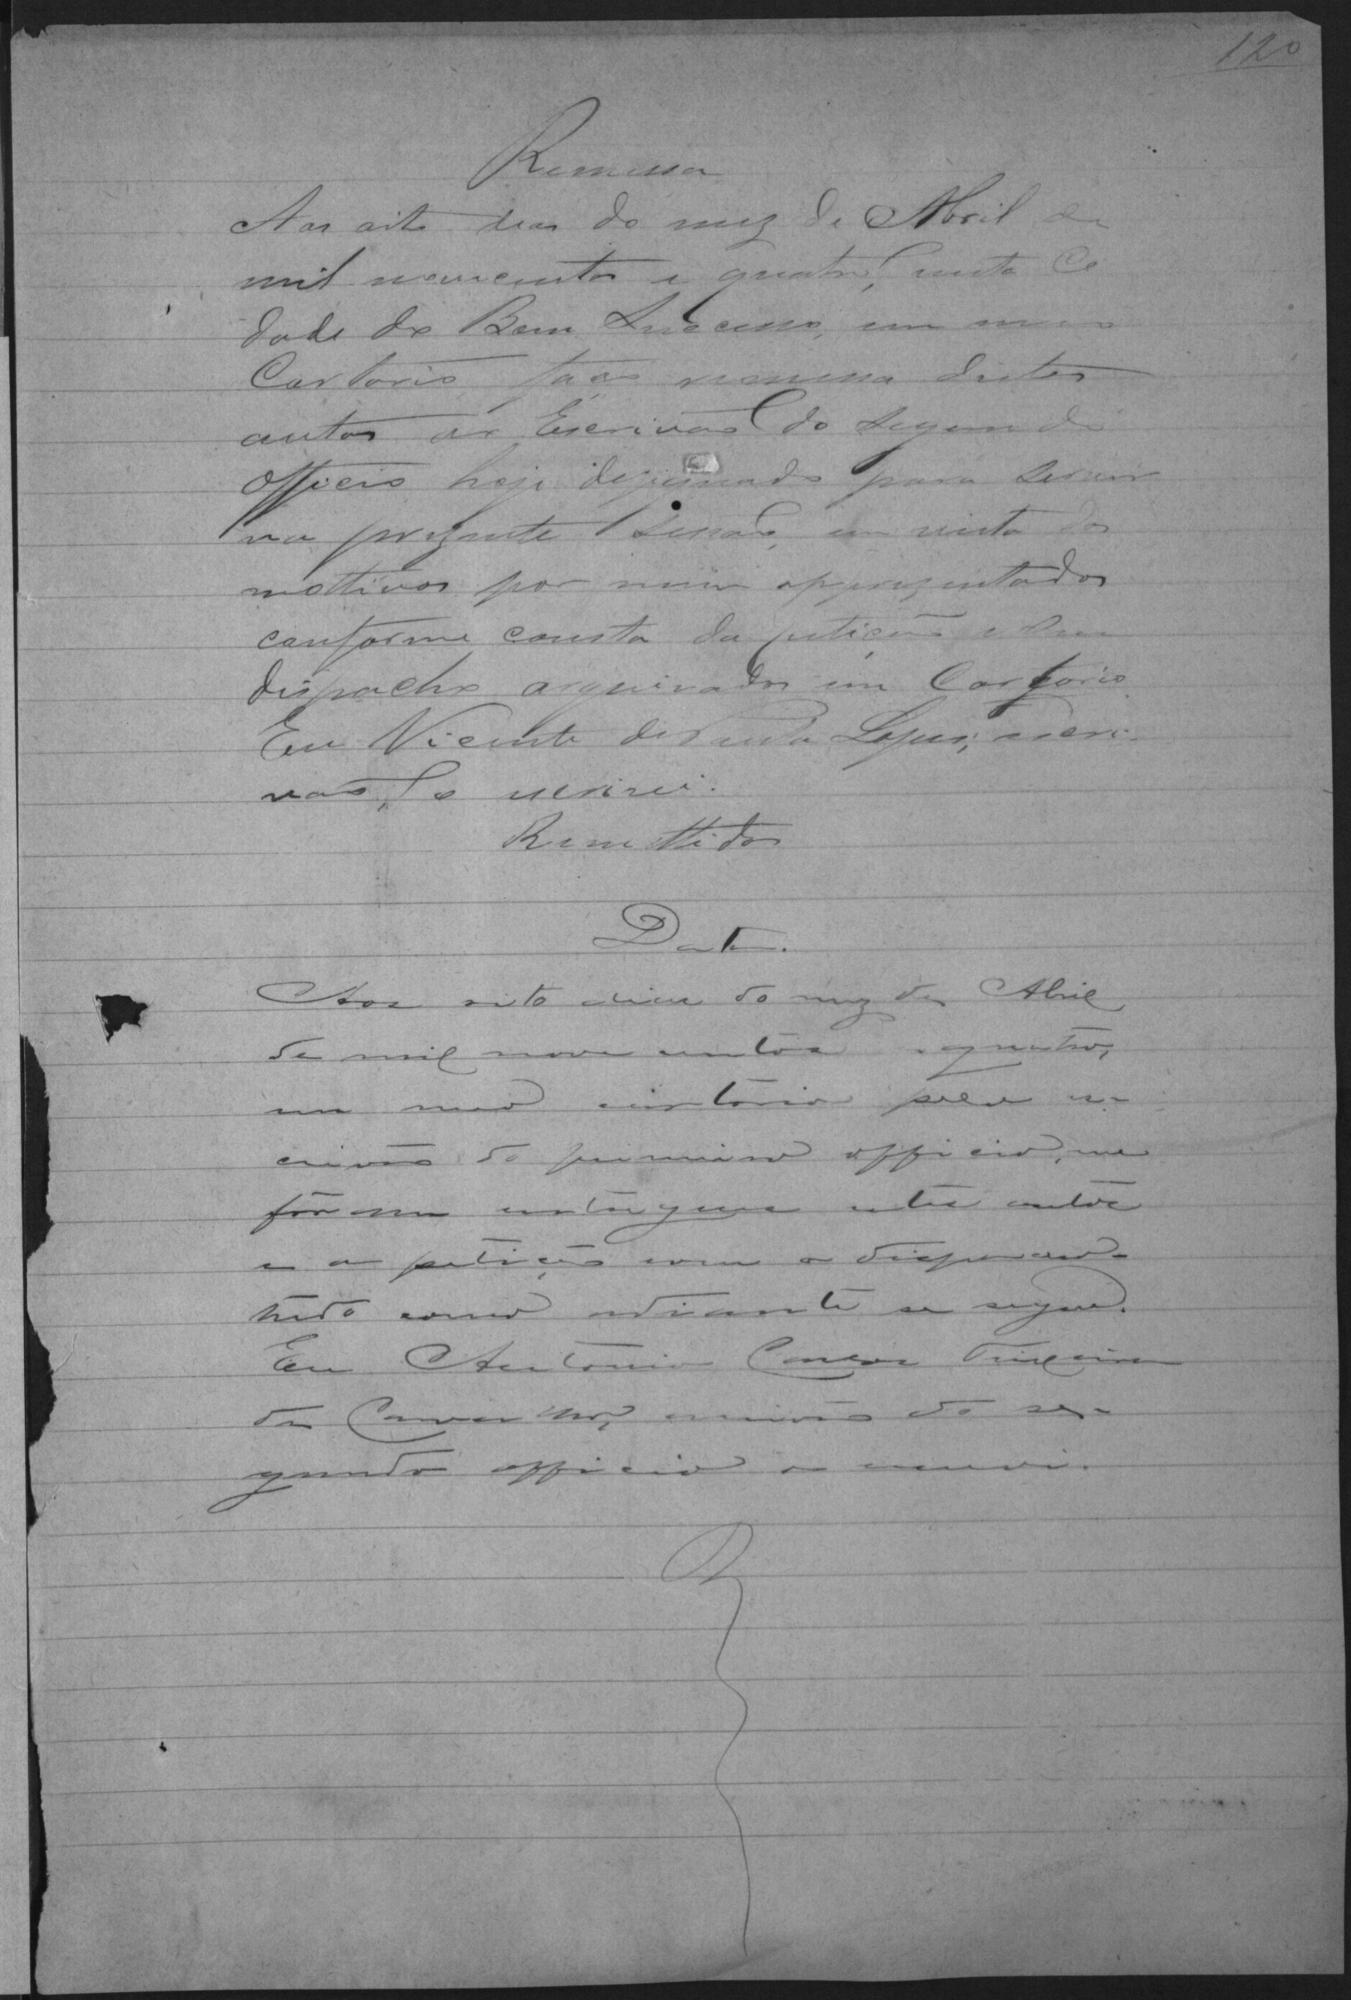 120
Remessa
Aos oito dias do mez de Abril de
mil novecentos e quatro, nesta Ci
dade do Bom Successo, em meu
Cartorio, faço remessa destes
autos ao Escrivão do segundo
officio hoje designado para servir
na prezente sessão, em vista dos
mottivos por mim apprezentados
conforme consta da petição e seu
dispacho arquivados em Cartorio.
Eu Vicente de Paula Lopes, escri-
vão, o escrevi.
Remettidos
Data.
Aos oito dias do mez de Abril
de mil nove centos e quatro,
em meo cartorio pelo es-
crivão do primeiro officio, me
forão entregues estes autos
e a petição com o despacho
tudo como adiante se segue.
Eu Antonio Teixeira
de Carvalho, escrivão do se-
gundo officio o escrevi.